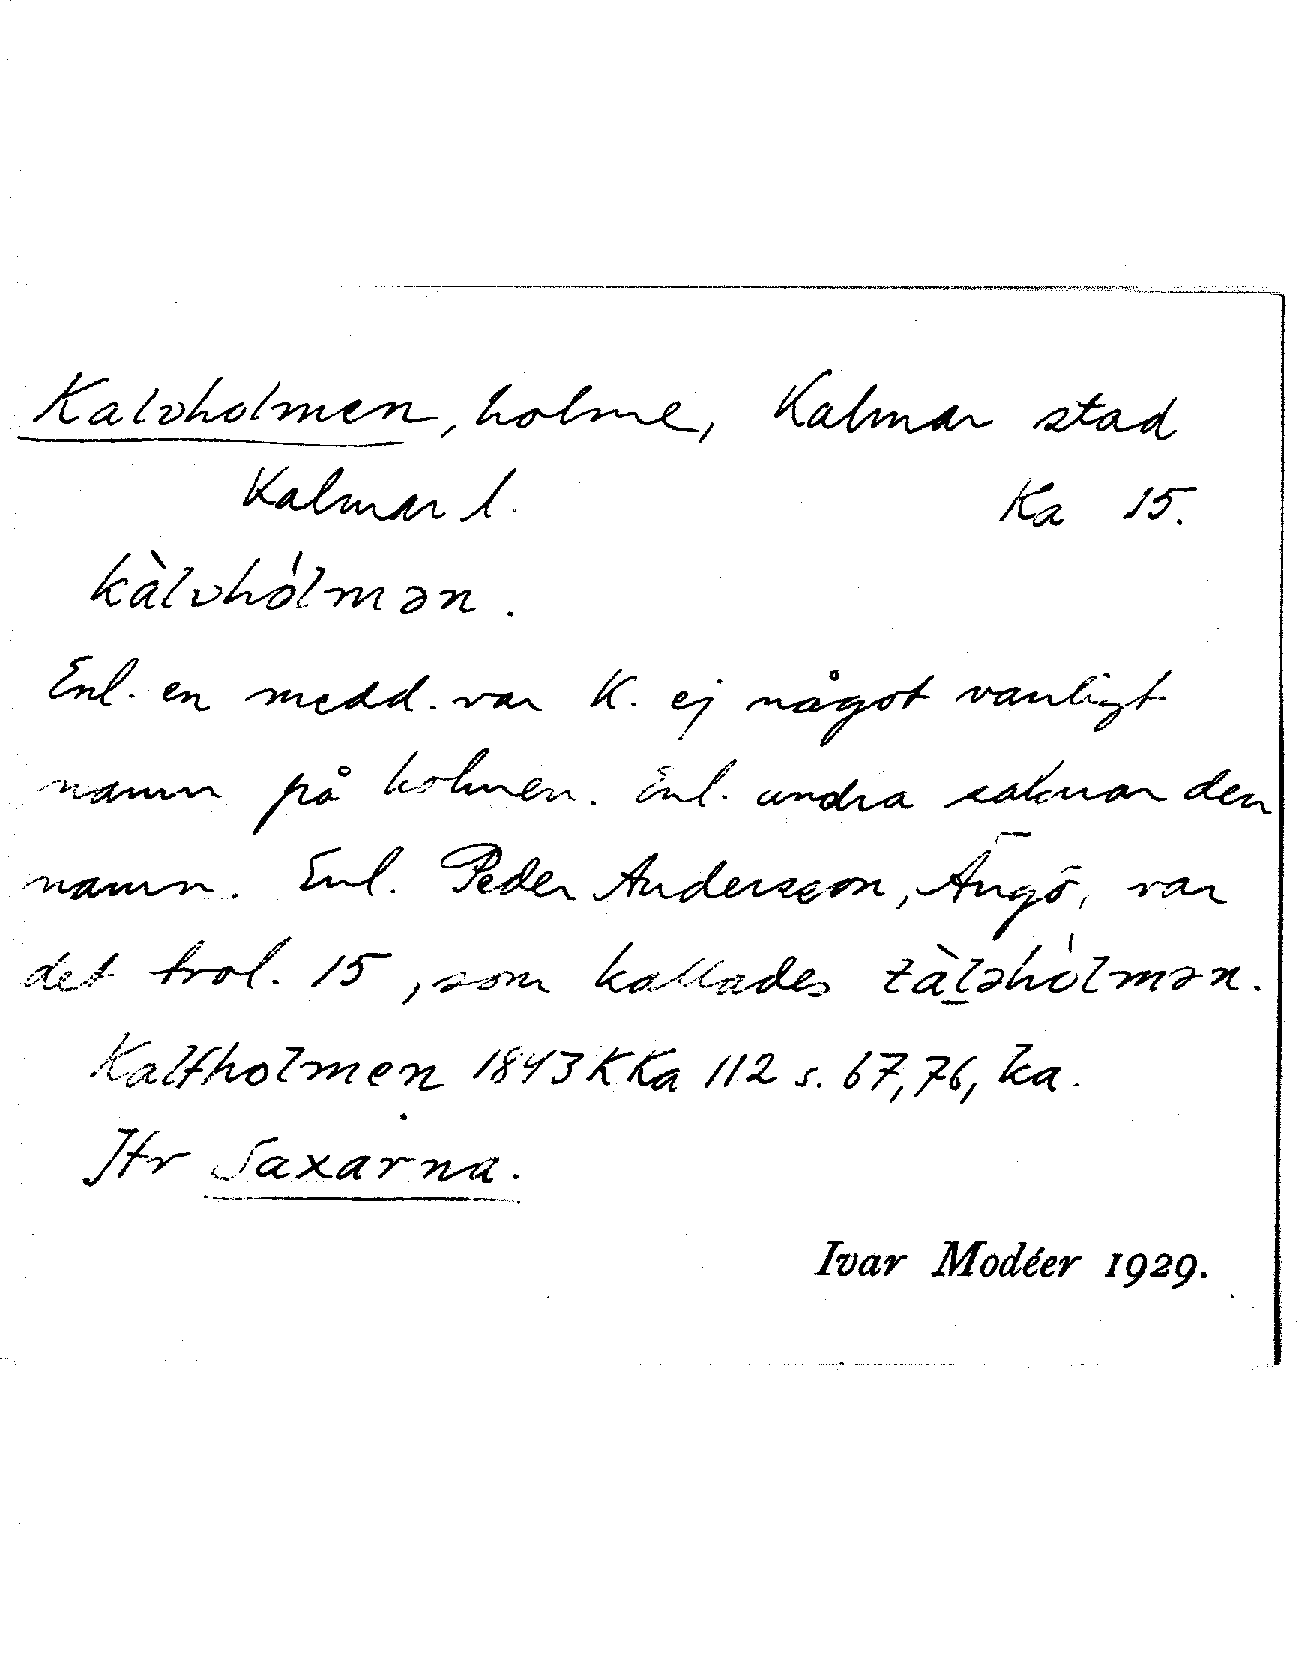 Kalvholmen, holme, Kalmar stad
Kalmar l. Ka 15.
kàlvhólmən.
Enl. en medd. var K. ej något vanligt
namn på holmen. Enl. andra saknar den
namn. Enl. Peder Andersson, Ängö, var
det trol. 15, som kallades tàləhòlmən.
Kalfholmen 1843 KKa 112 s. 67, 76, ka.
Jfr Saxarna.
Ivar Modéer 1929.